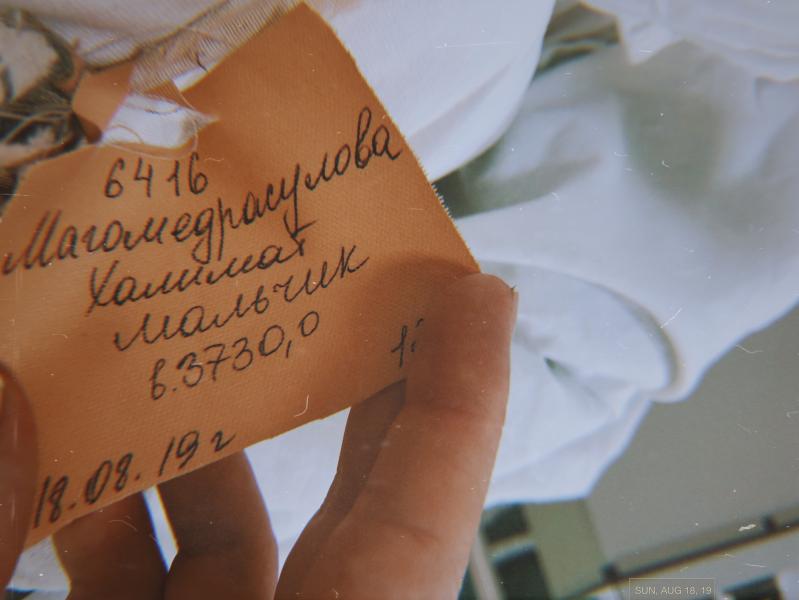 6416
Магомедрасулова
Халимат
мальчик
в.3730,0
18.08.19 г
SUN, AUG 18, 19